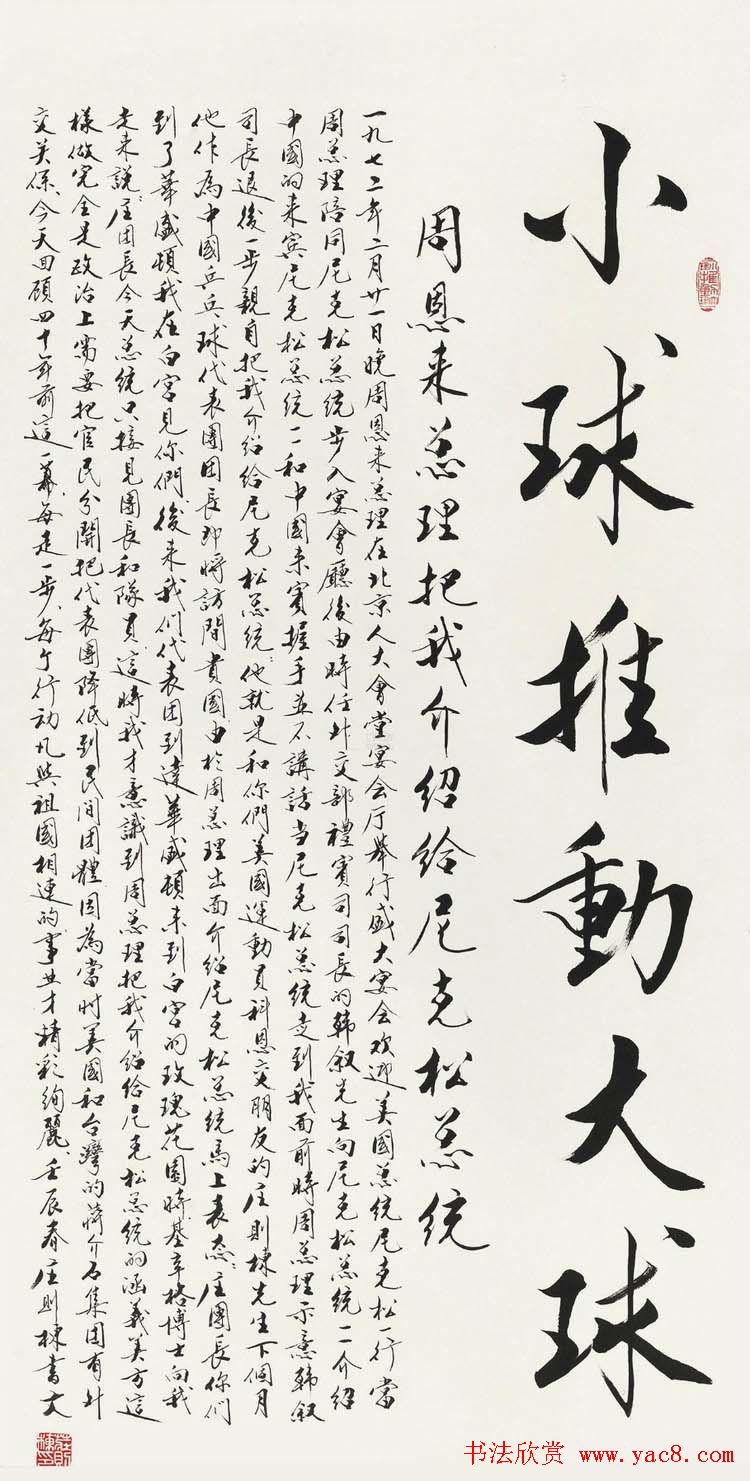 小球推動大球
周恩来总理把我介绍给尼克松总统
一九七二年二月廿一日晚周恩来总理在北京人大會堂宴会厅举行盛大宴会欢迎美国总统尼克松一行當
周总理陪同尼克松总统步入宴會廳後由時任外交部禮賓司司長的韩叙先生向尼克松总统一一介绍
中國的来宾尼克松总统一一和中國来賓握手並不講話当尼克松总统走到我面前時周总理示意韩叙
司長退後一步親自把我介绍给尼克松总统:他就是和你們美國運動員科恩交朋友的庄則棟先生下個月
他作為中國乒乓球代表團團長即将訪問貴國由於周总理出面介绍尼克松总统馬上表态:庄團長你们
到了華盛頓我在白宫見你們後来我们代表团到達華盛頓来到白宫的玫瑰花園時基辛格博士向我
走来說:庄团長今天总统只接見團長和隊員這時我才意識到周总理把我介绍给尼克松总统的涵義美方這
樣做完全是政治上需要把官民分開把代表團降低到民间团體因為當时美國和台灣的蒋介石集团有外
交关係今天回顾四十年前這一幕每走一步每个行动凡與祖國相連的事业才精彩絢麗壬辰春庄則棟書文
书法欣赏 www.yac8.com